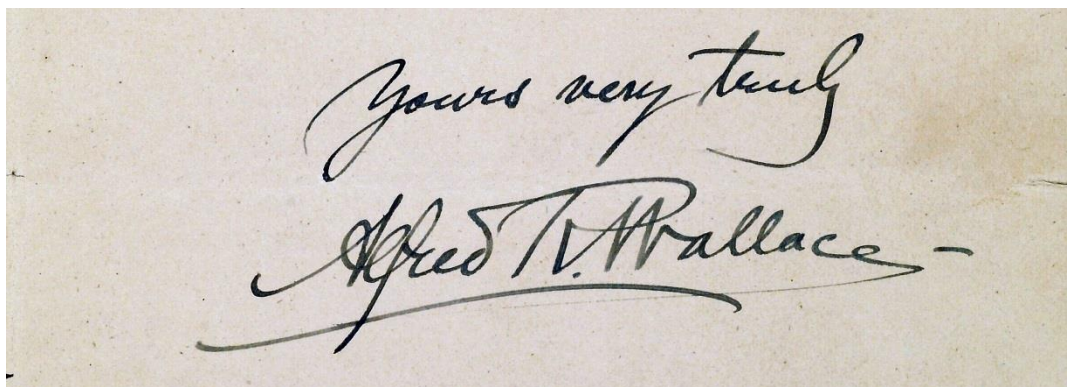 Yours very truly
Alfred R. Wallace